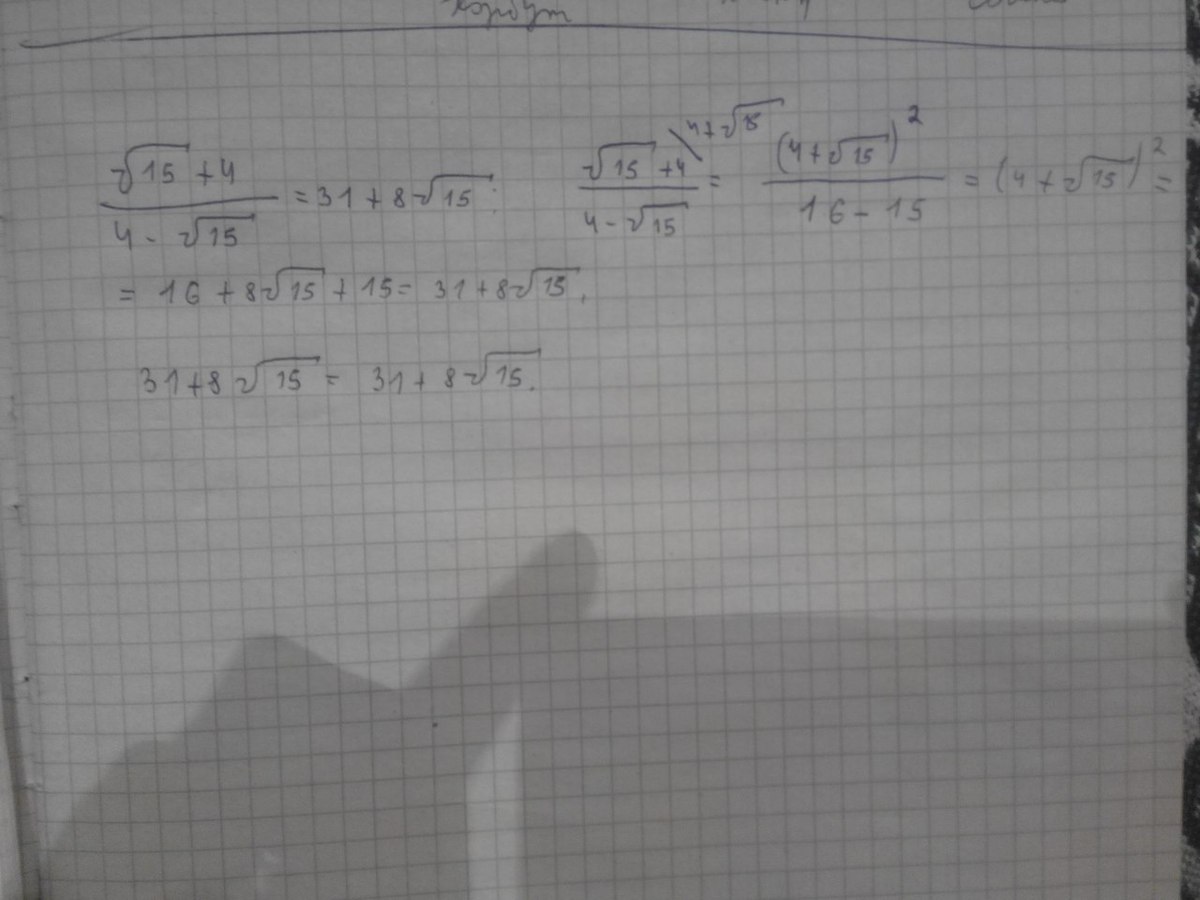 (√15 + 4)/(4 - √15) = 31 + 8√15; (√15 + 4)/(4 - √15) \ 4 + √15 = (4 + √15)²/(16 - 15) = (4 + √15)² =
= 16 + 8√15 + 15 = 31 + 8√15.
31 + 8√15 = 31 + 8√15.